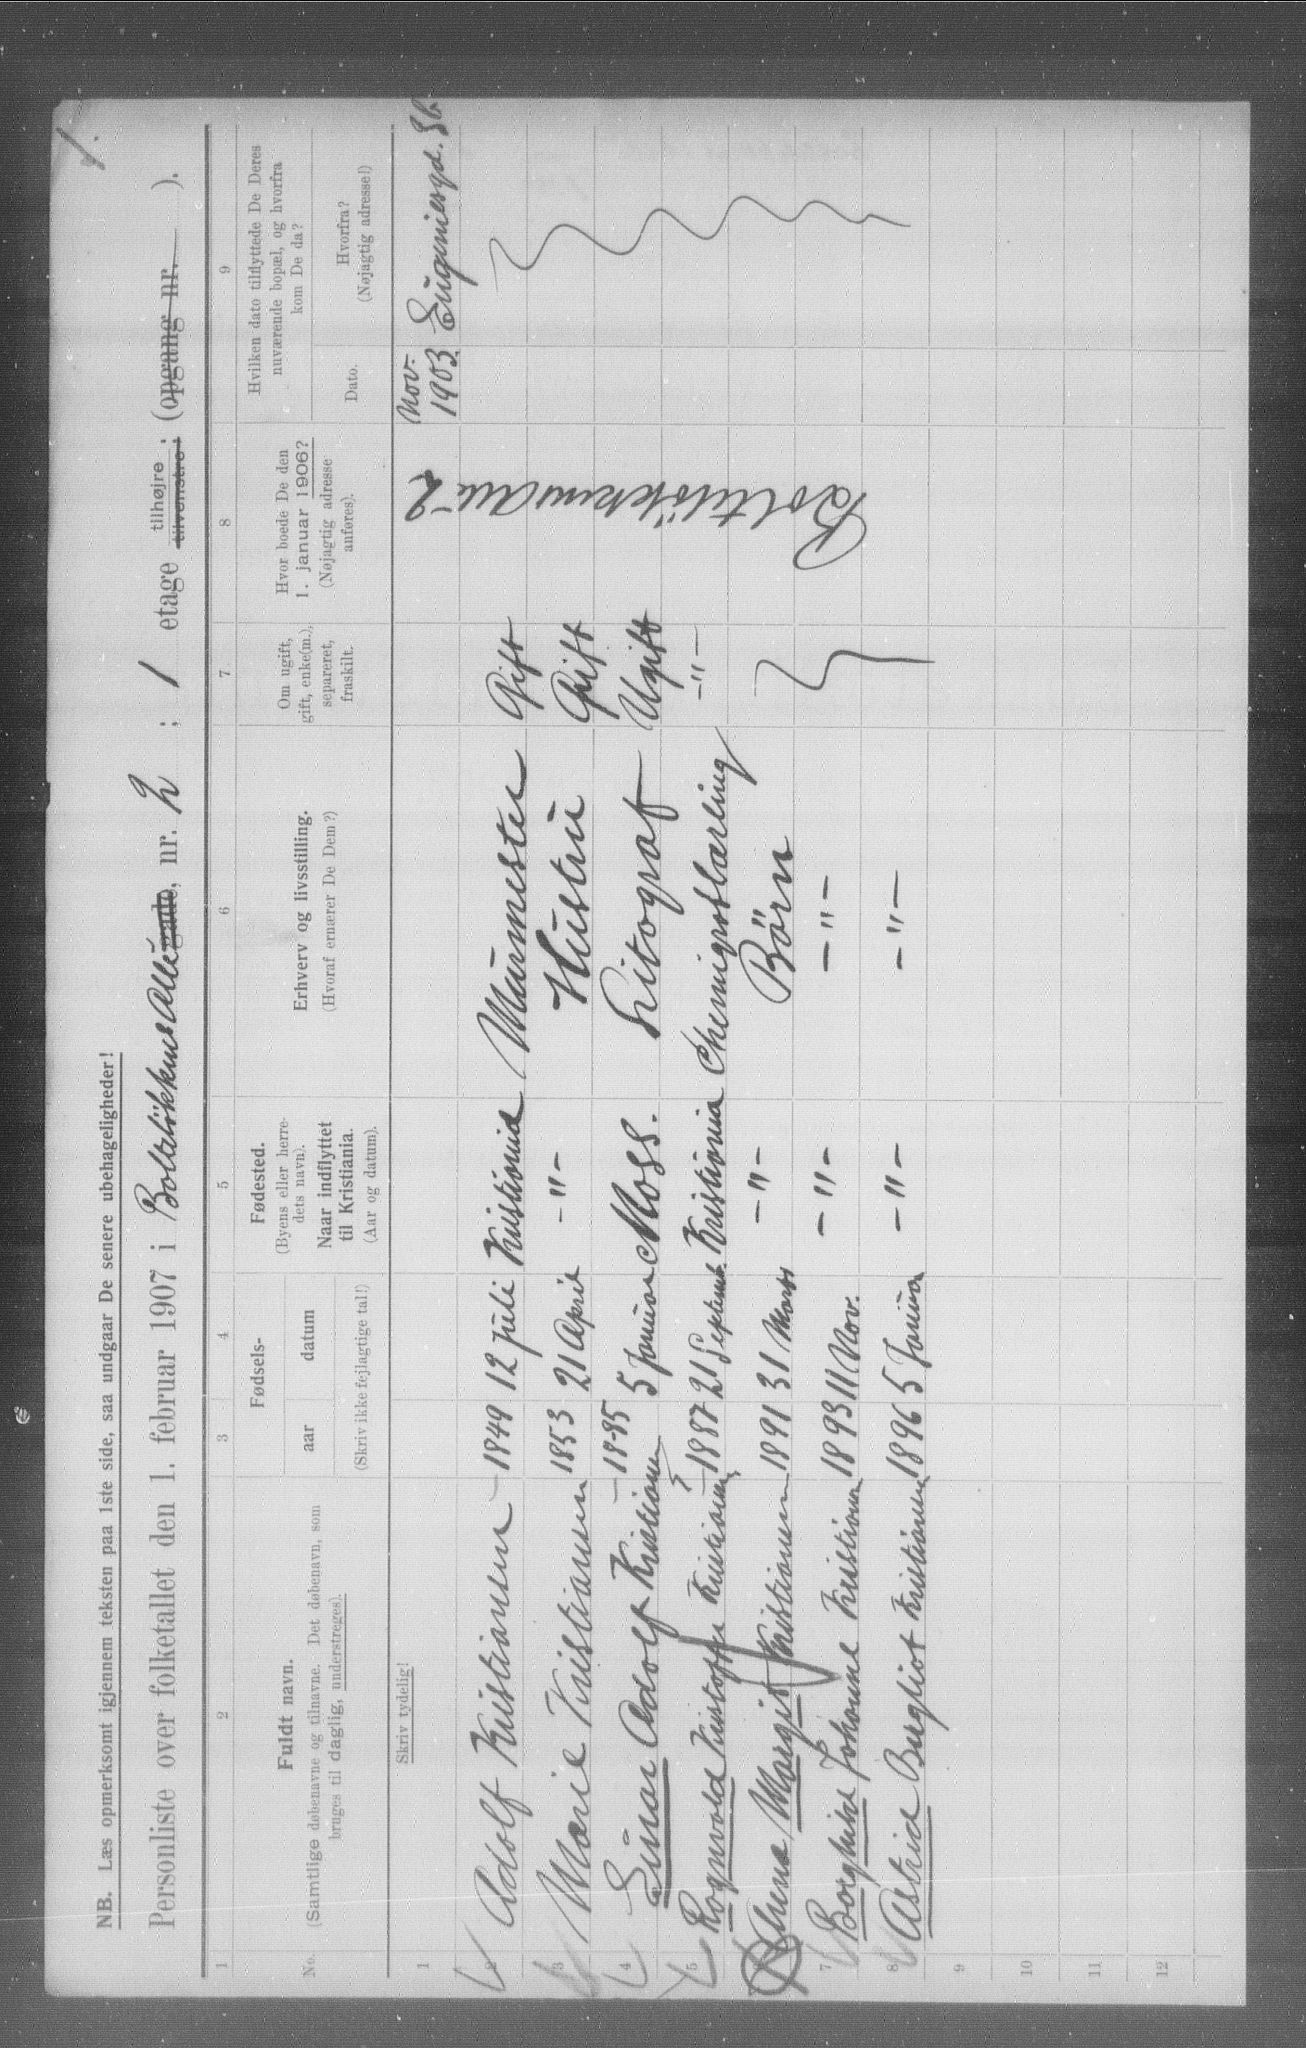 1.
NB. Læs opmerksomt igjennem teksten paa 1ste side, saa undgaar De senere ubehageligheder!
Personliste over folketallet den 1. februar 1907 i Bolteløkkens Alle gade, nr. 2 ; 1 etage tilhøjre ; tilvenstre ; (opgang nr. ).
1 2 3 4 5 6 7 8 9
No.
Fuldt navn.
(Samtlige døbenavne og tilnavne. Det døbenavn, som
bruges til daglig, understreges).
Fødsels-
aar datum
(Skriv ikke fejlagtige tal!)
Fødested.
(Byens eller herre-
dets navn).
Naar indflyttet
til Kristiania.
(Aar og datum).
Erhverv og livsstilling.
(Hvoraf ernærer De Dem?)
Om ugift,
gift, enke(m.),
separeret,
fraskilt.
Hvor boede De den
1. januar 1906?
(Nøjagtig adresse
anføres).
Hvilken dato tilflyttede De Deres
nuværende bopæl, og hvorfra
kom De da?
Dato.
Hvorfra?
(Nøjagtig adresse!)
Skriv tydelig!
1 Nov. 1903. Eugeniesgd.
Bolteløkkens Alle 2
2 Adolf Kristiansen 1849 12 juli Kristiania Murmester Gift
3 Marie Kristiansen 1853 21 April -"- Hustru Gift
4 Einar Adolf Kristiansen 1885 5 Januar Moss. Litograf Ugift
5 Rognvald Kristoffer Kristiansen 1887 21 Septemb. Kristiania Chemigraflærling -"-
Anna Margit Kristiansen 1891 31 Marts -"- Børn
7 Borghild Johanne Kristiansen 1893 11 Nov. -"- -"-
8 Astrid Bergliot Kristiansen 1896 5 Januar -"- -"-
9
10
11
12